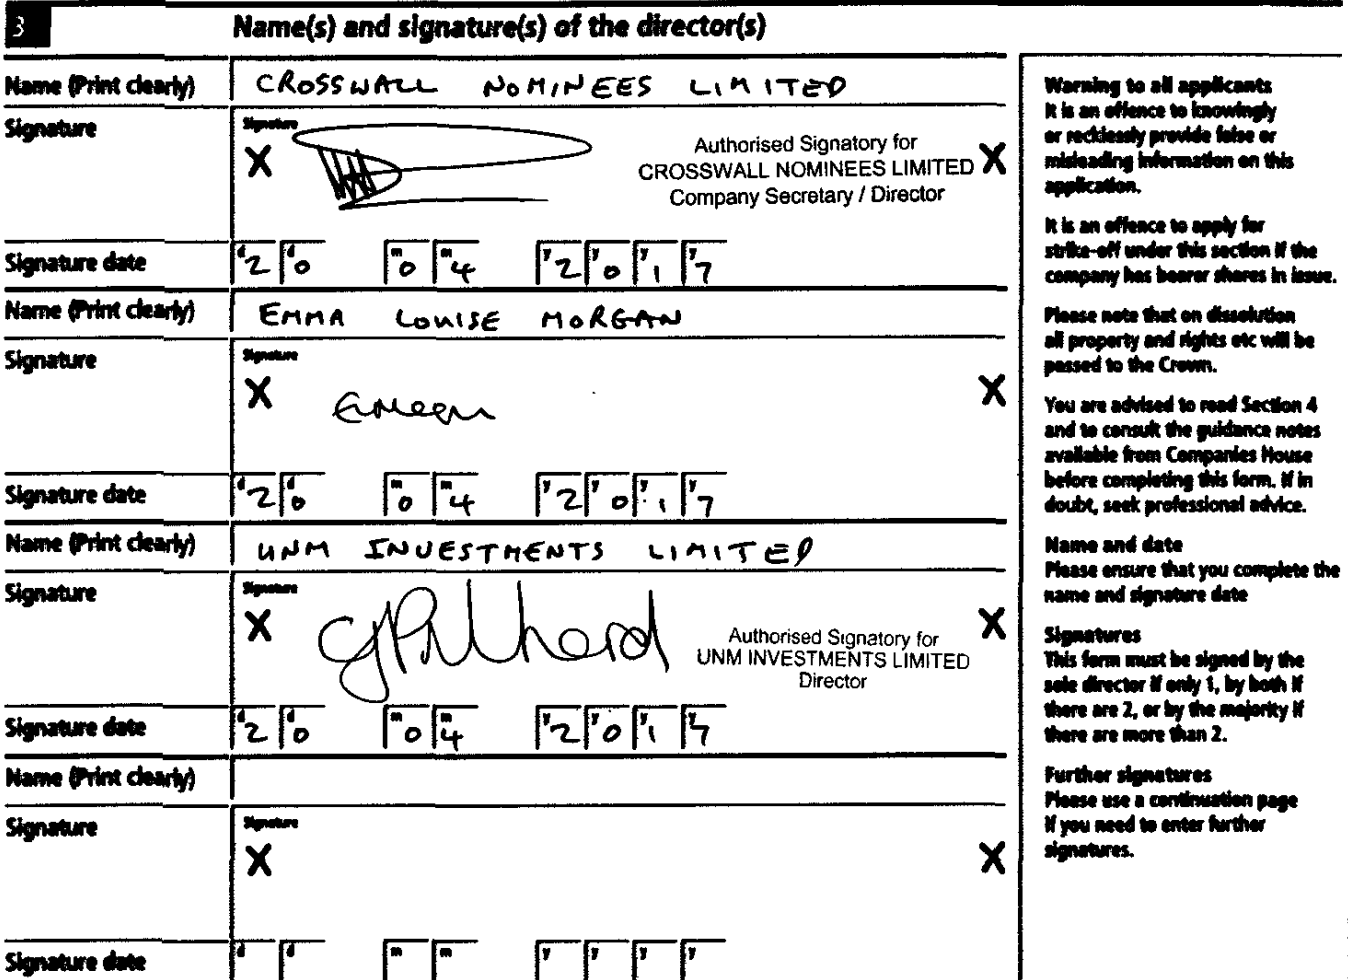 3 Name(s) and signature(s) of the director(s)
Name (Print clearly) CROSSWALL NOMINEES LIMITED
Signature
Signature
X X
Authorised Signatory for
CROSSWALL NOMINEES LIMITED
Company Secretary / Director
Signature date d2 d0 m0 m4 y2 y0 y1 y7
Name (Print clearly) EMMA LOUISE MORGAN
Signature
Signature
X X
Signature date d2 d0 m0 m4 y2 y0 y1 y7
Name (Print clearly) UNM INVESTMENTS LIMITED
Signature
Signature
X X
Authorised Signatory for
UNM INVESTMENTS LIMITED
Director
Signature date d2 d0 m0 m4 y2 y0 y1 y7
Name (Print clearly)
Signature
Signature
X X
Signature date d d m m y y y y
Warning to all applicants
It is an offence to knowingly
or recklessly provide false or
misleading information on this
application.
It is an offence to apply for
strike-off under this section if the
company has bearer shares in issue.
Please note that on dissolution
all property and rights etc will be
passed to the Crown.
You are advised to read Section 4
and to consult the guidance notes
available from Companies House
before completing this form. If in
doubt, seek professional advice.
Name and date
Please ensure that you complete the
name and signature date
Signatures
This form must be signed by the
sole director if only 1, by both if
there are 2, or by the majority if
there are more than 2.
Further signatures
Please use a continuation page
if you need to enter further
signatures.